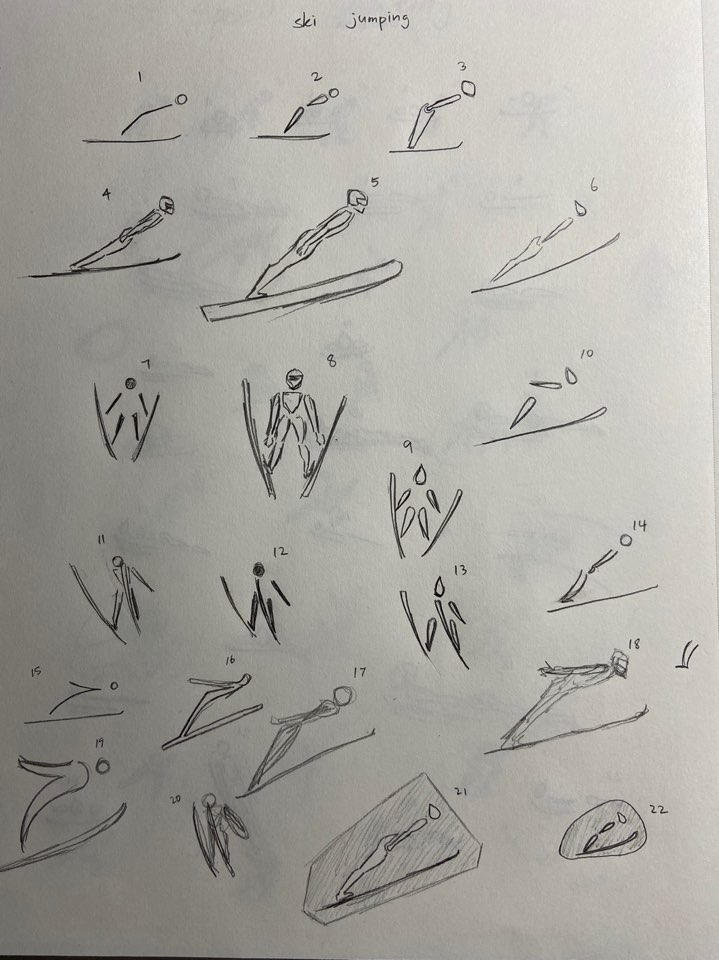 ski jumping
1 2 3
4 5 6
7 8
10
9
11 12 13 14
15 16 17 18
19
20 21 22